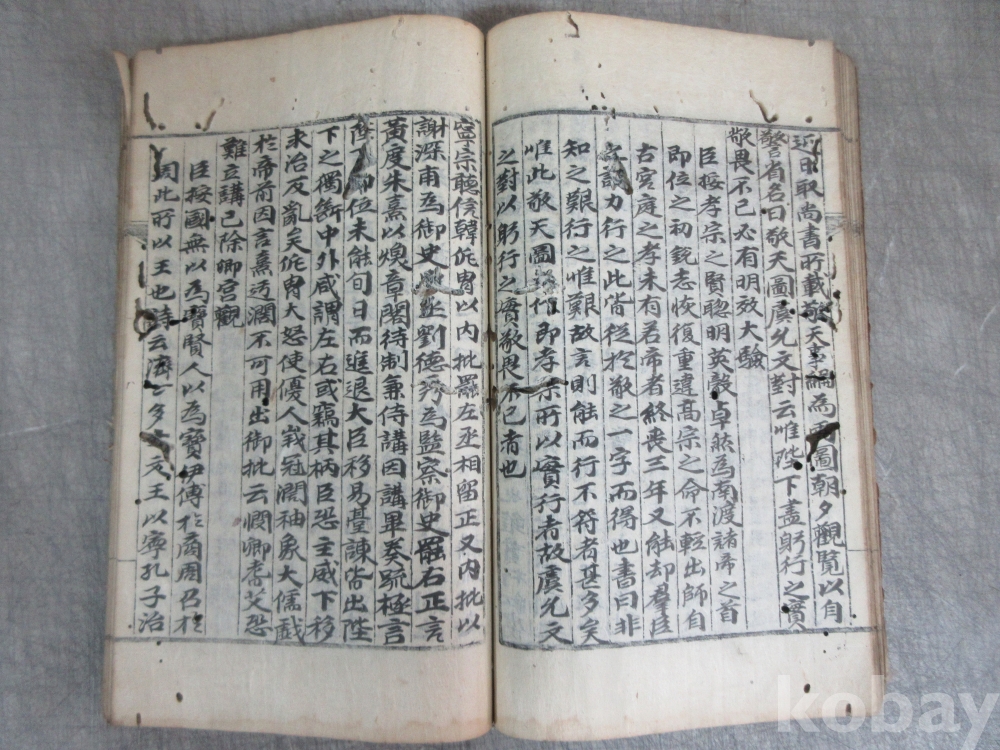 近日取尚書所載敬天事編為兩圖朝夕觀覽以自
警省名曰敬天圖虞允文對云唯陛下盡躬行之實
敬畏不已必有明效大驗
臣按孝宗之賢聰明英毅卓然為南渡諸帝之首
即位之初銳志恢復重違高宗之命不輕出師自
古宮庭之孝未有若帝者終喪三年又能却羣臣
之議力行之此皆從於敬之一字而得也書曰非
知之艱行之惟艱故言則能而行不符者甚多矣
唯此敬天圖之作即孝宗所以實行者故虞允文
之對以躬行之實敬畏不已者也
寧宗聽信韓侂冑以內批罷左丞相留正又內批以
謝深甫為御史中丞劉德秀為監察御史罷右正言
黃度朱熹以煥章閣待制兼侍講因講畢奏疏極言
陛下即位未能旬日而進退大臣移易臺諫皆出陛
下之獨斷中外咸謂左右或竊其柄臣恐主威下移
未治反亂矣侂冑大怒使優人峩冠濶袖象大儒戲
於帝前因言熹迂濶不可用出御批云憫卿耆艾恐
難立講已除卿宮觀
臣按國無以為寶賢人以為寶伊傅於商周召於
周此所以王也詩云濟〻多士文王以寧孔子治
kobay